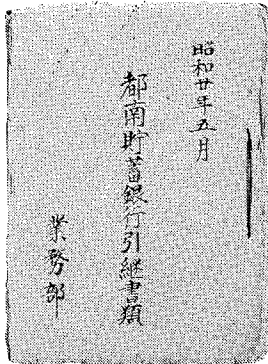 昭和廿年五月
都南貯蓄銀行引継書類
業務部